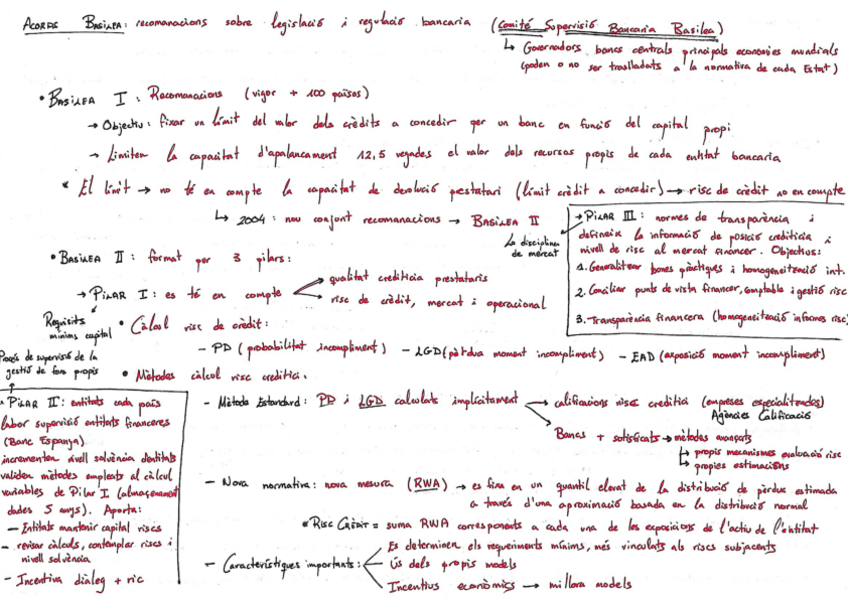 Acords Basilea: recomanacions sobre legislació i regulació bancaria (Comité Supervisió Bancaria Basilea)
↳ Governadors bancs centrals principals economies mundials
(poden o no ser traslladats a la normativa de cada Estat)
• Basilea I: Recomanacions (vigor + 100 països)
→ Objectiu: fixar un límit del valor dels crèdits a concedir per un banc en funció del capital propi
→ Limiten la capacitat d'apalancament 12,5 vegades el valor dels recursos propis de cada entitat bancaria
* El límit → no té en compte la capacitat de devolució prestatari (límit crèdit a concedir) → risc de crèdit no en compte
↳ 2004: nou conjunt recomanacions → Basilea II
La disciplina
de mercat
→ Pilar III: normes de transparència i
defineix la informació de posició crediticia i
nivell de risc al mercat financer. Objectius:
1. Generalitzar bones pràctiques i homogeneització int.
2. Conciliar punts de vista financer, comptable i gestió risc
3. Transparència financera (homogeneització informes risc)
• Basilea II: format per 3 pilars:
→ Pilar I: es té en compte
qualitat crediticia prestataris
risc de crèdit, mercat i operacional
Requisits
mínims capital
• Càlcul risc de crèdit:
- PD (probabilitat incompliment) - LGD (pèrdua moment incompliment) - EAD (exposició moment incompliment)
• Mètodes càlcul risc creditici.
Procés de supervisió de la
gestió de fons propis
• Pilar II: entitats cada país
labor supervisió entitats financeres
(Banc Espanya)
incrementen nivell solvència d'entitats
validen mètodes empleats al càlcul
variables de Pilar I (almaçenament
dades 5 anys). Aporta:
- Entitats mantenir capital riscs
- revisar càlculs, contemplar riscs i
nivell solvència
- Incentiva dialeg + ric
- Mètode Estandard: PD i LGD calculats implícitament
→ calificacions riscs crediticia (empreses especialitzades)
Agències Calificació
Bancs + sofisticats → mètodes avançats
↳ propis mecanismes evaluació risc
↳ propies estimacions
- Nova normativa: nova mesura (RWA) → es fixa en un quantil elevat de la distribució de pèrdua estimada
a través d'una aproximació basada en la distribució normal
* Risc Crèdit = suma RWA corresponents a cada una de les exposicions de l'actiu de l'entitat
- Característiques importants:
Es determinen els requeriments mínims, més vinculats als riscs subjacents
Ús dels propis models
Incentius econòmics → millora models